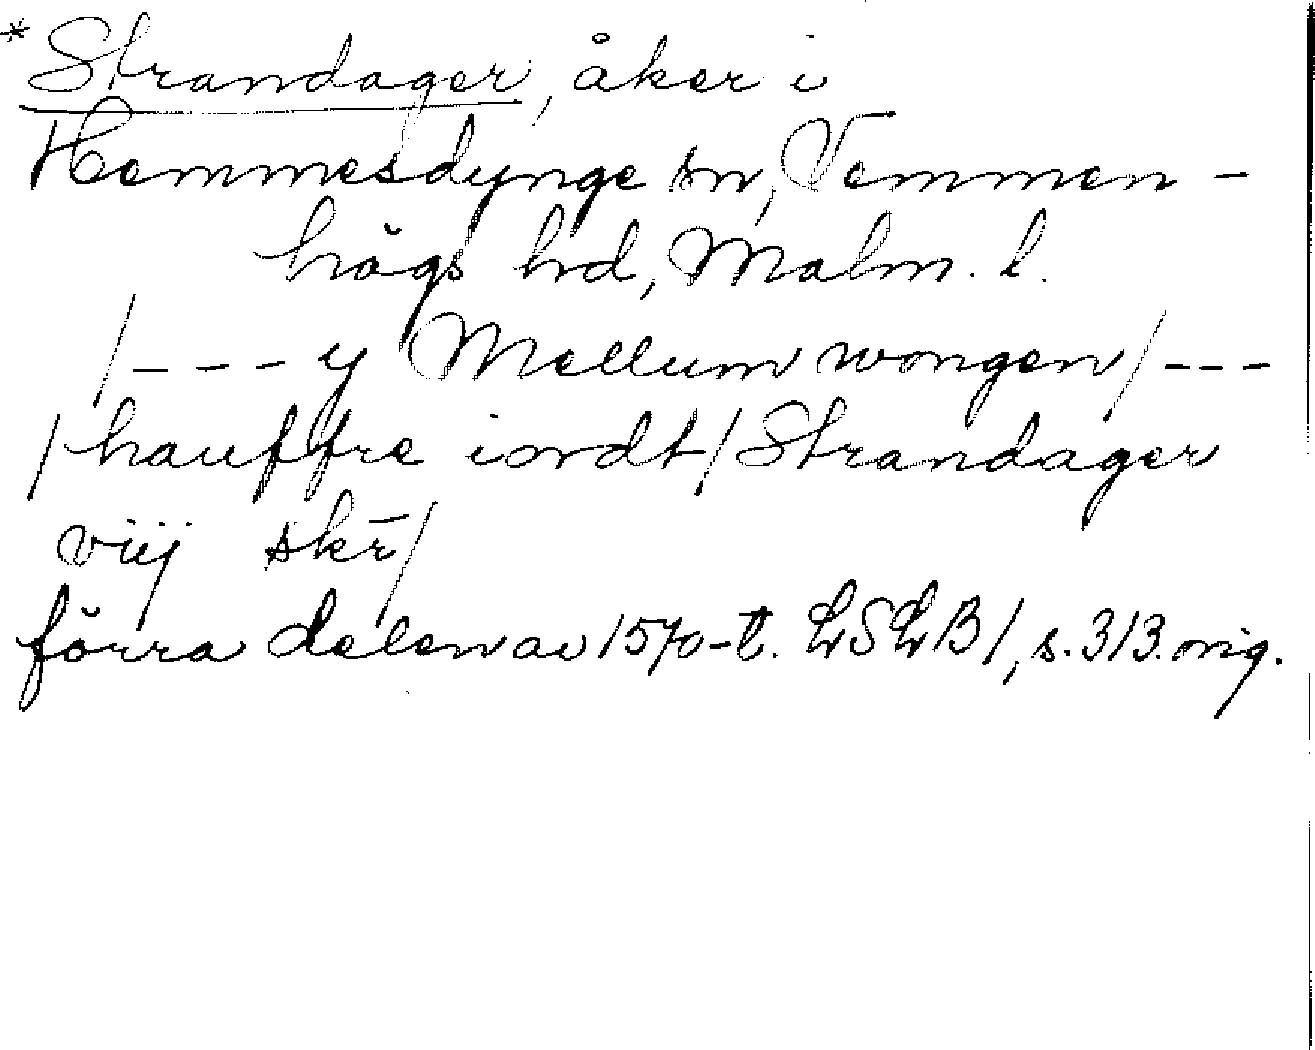 *Strandager, åker i
Hemmesdynge sn, Vemmen-
högs hd, Malm. l.
/--- y Mellum wongen/---
/hauffre iordt/Strandager
viij skr̄/
förra delen av 1570-t. LSLB1, s. 313. orig.